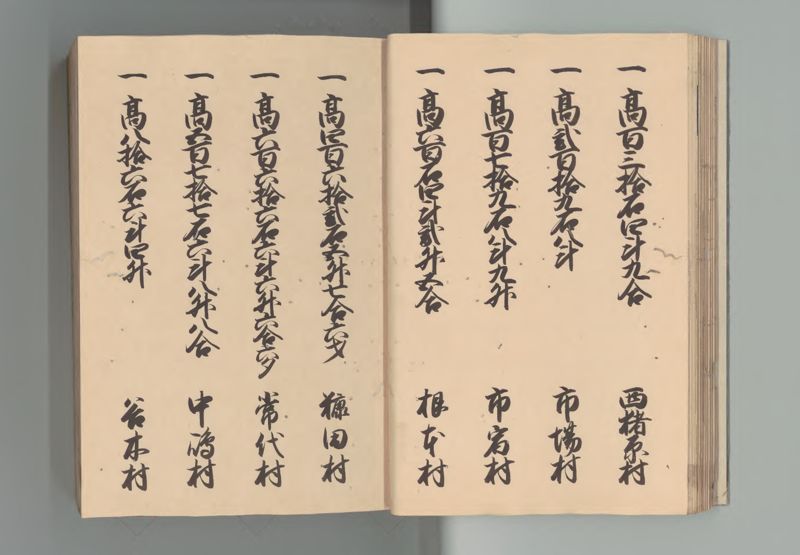 一 高百三拾石四斗九合 西猪原村
一 高弐百拾九石八斗 市場村
一 高百七拾九石八斗九升 市宿村
一 高六百石四斗弐升五合 根本村
一 高四百六拾弐石五升七合六夕 糠田村
一 高六百六拾六石六斗六升六合六夕 常代村
一 高五百七拾七石六斗八升八合 中嶋村
一 高八拾六石六斗四升 谷本村